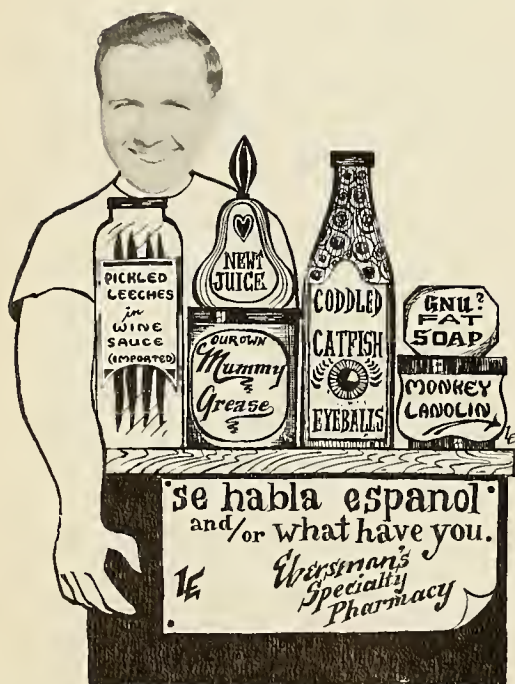 PICKLED
LEECHES
in
WINE
SAUCE
(IMPORTED)
NEWT
JUICE
OUR OWN
Mummy
Grease
CODDLED
CATFISH
EYEBALLS
GNU?
FAT
SOAP
MONKEY
LANOLIN
"se habla espanol"
and/or what have you.
Ebersman's
Specialty
Pharmacy